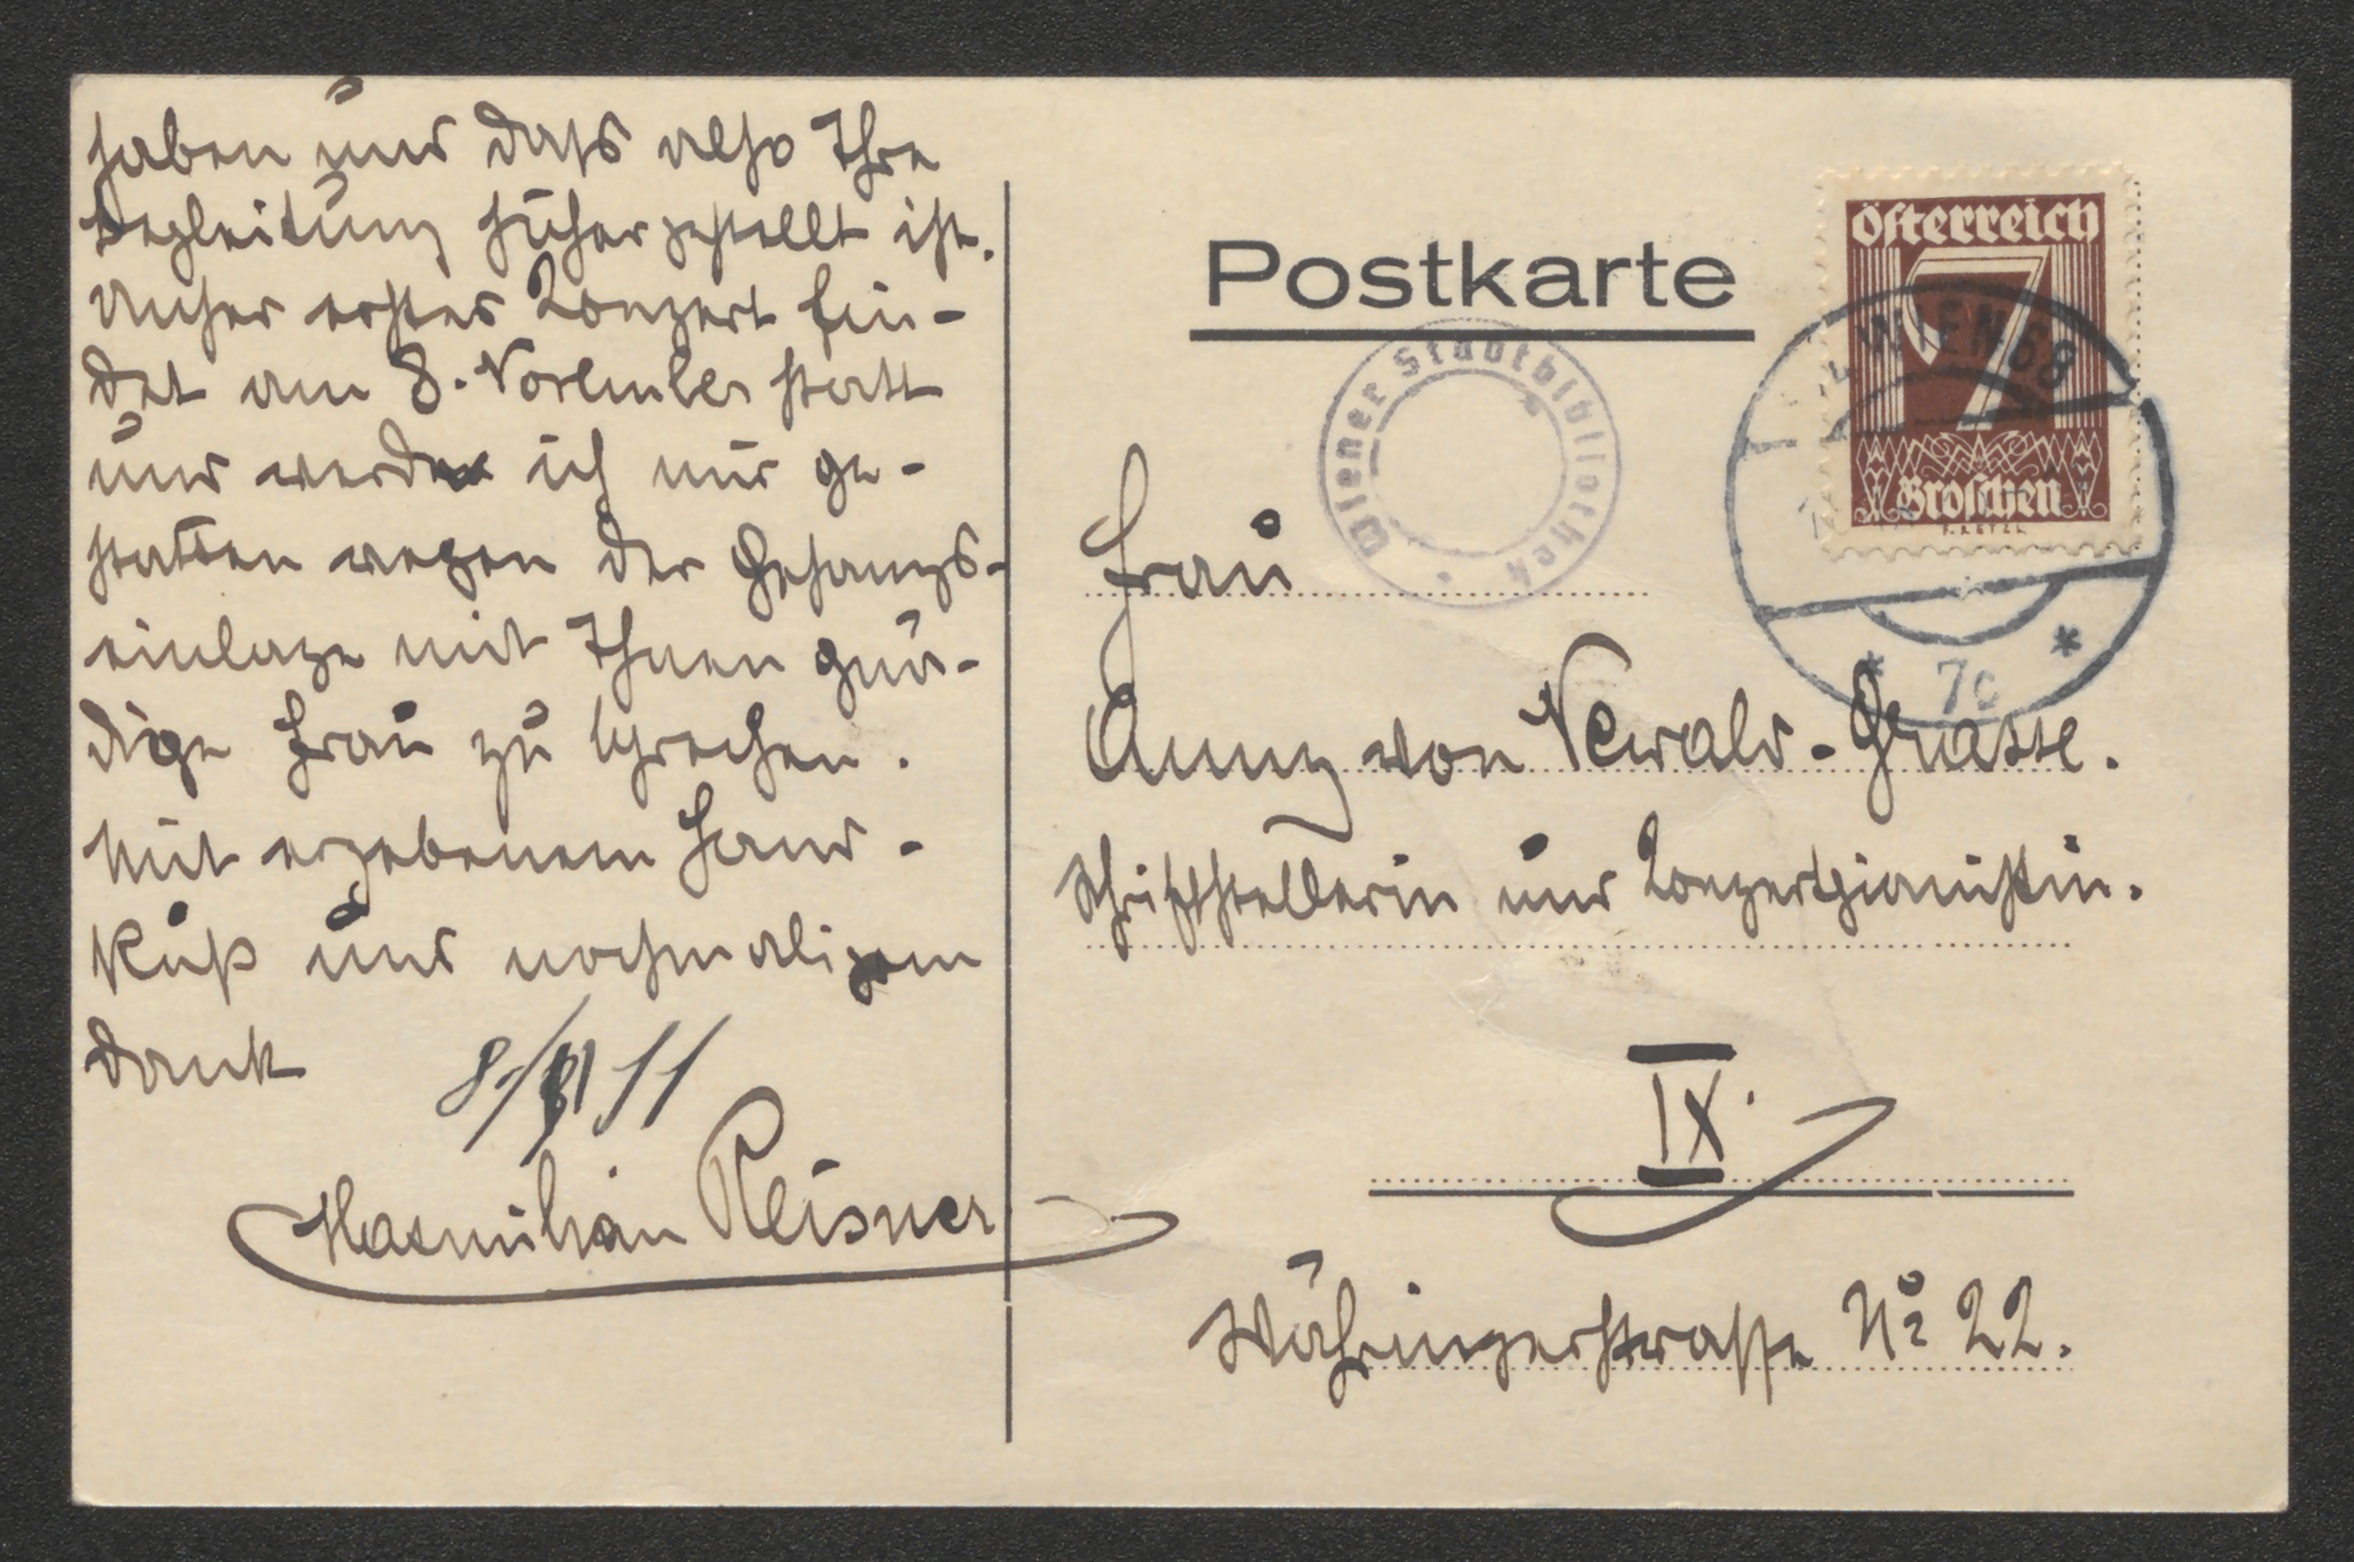 haben und dass also Ihre
Begleitung sichergestellt ist.
Unser erstes Konzert fin-
det am 8. November statt
und werde ich mir ge-
statten wegen der Gesangs-
einlage mit Ihnen gnä-
dige Frau zu sprechen.
Mit ergebenem Hand-
kuß und nochmaligem
Dank
Maximilian Reisner
Postkarte
Österreich
7
Groschen
WIEN 68
* 7c *
Wiener Stadtbibliothek
Frau
Anny von Newald-Grasse.
Schriftstellerin und Konzertpianistin.
IX.
Währingerstrasse No 22.